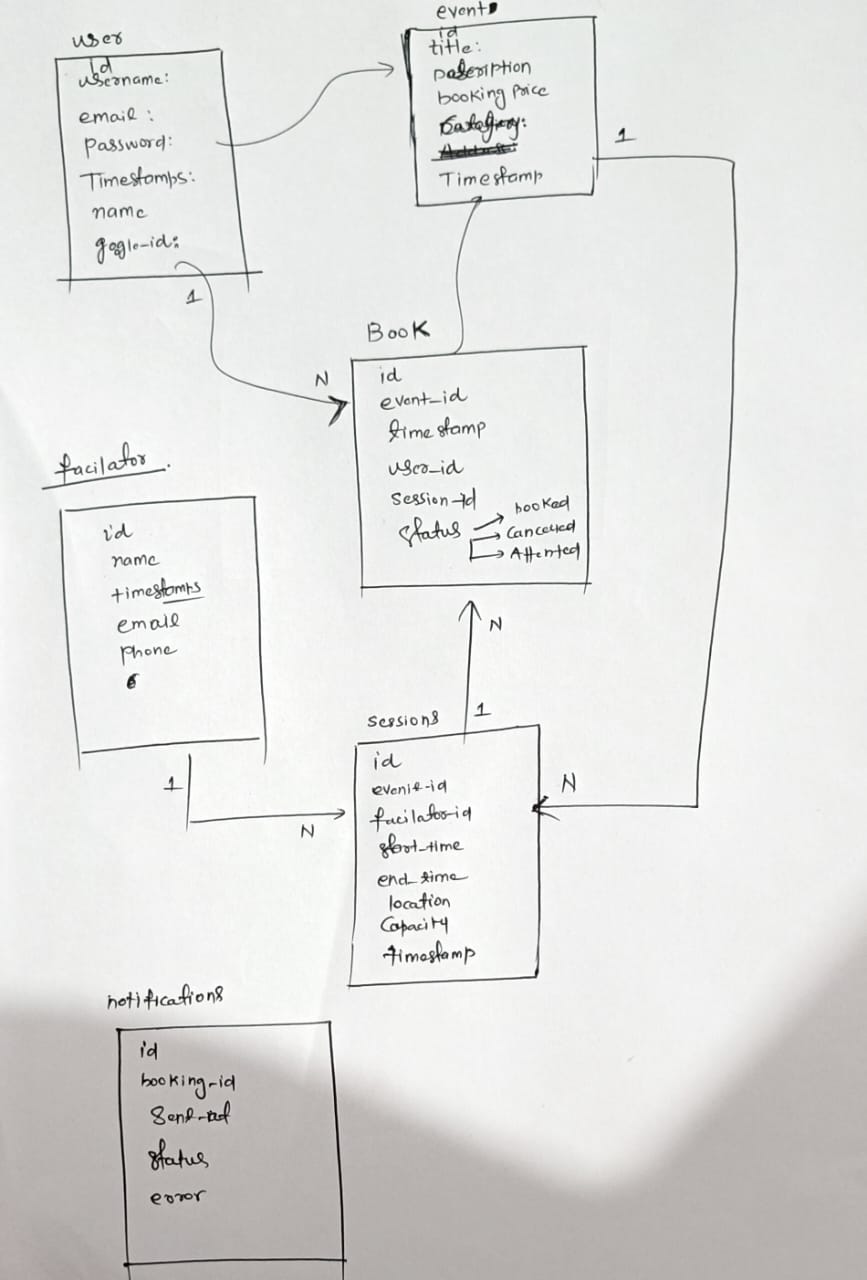 user
id
username:
email :
password:
Timestamps:
name
gogle-id:
1
events
id
title:
Description
booking Price
Category:
Timestamp
1
Book
N
id
event-id
timestamp
user-id
session-id
status
booked
Cancelled
Attented
N
facilator.
id
name
timestamps
email
phone
1
N
sessions
1
id
facilator-id
start-time
end-time
location
Capacity
timestamp
N
notifications
id
booking-id
status
error